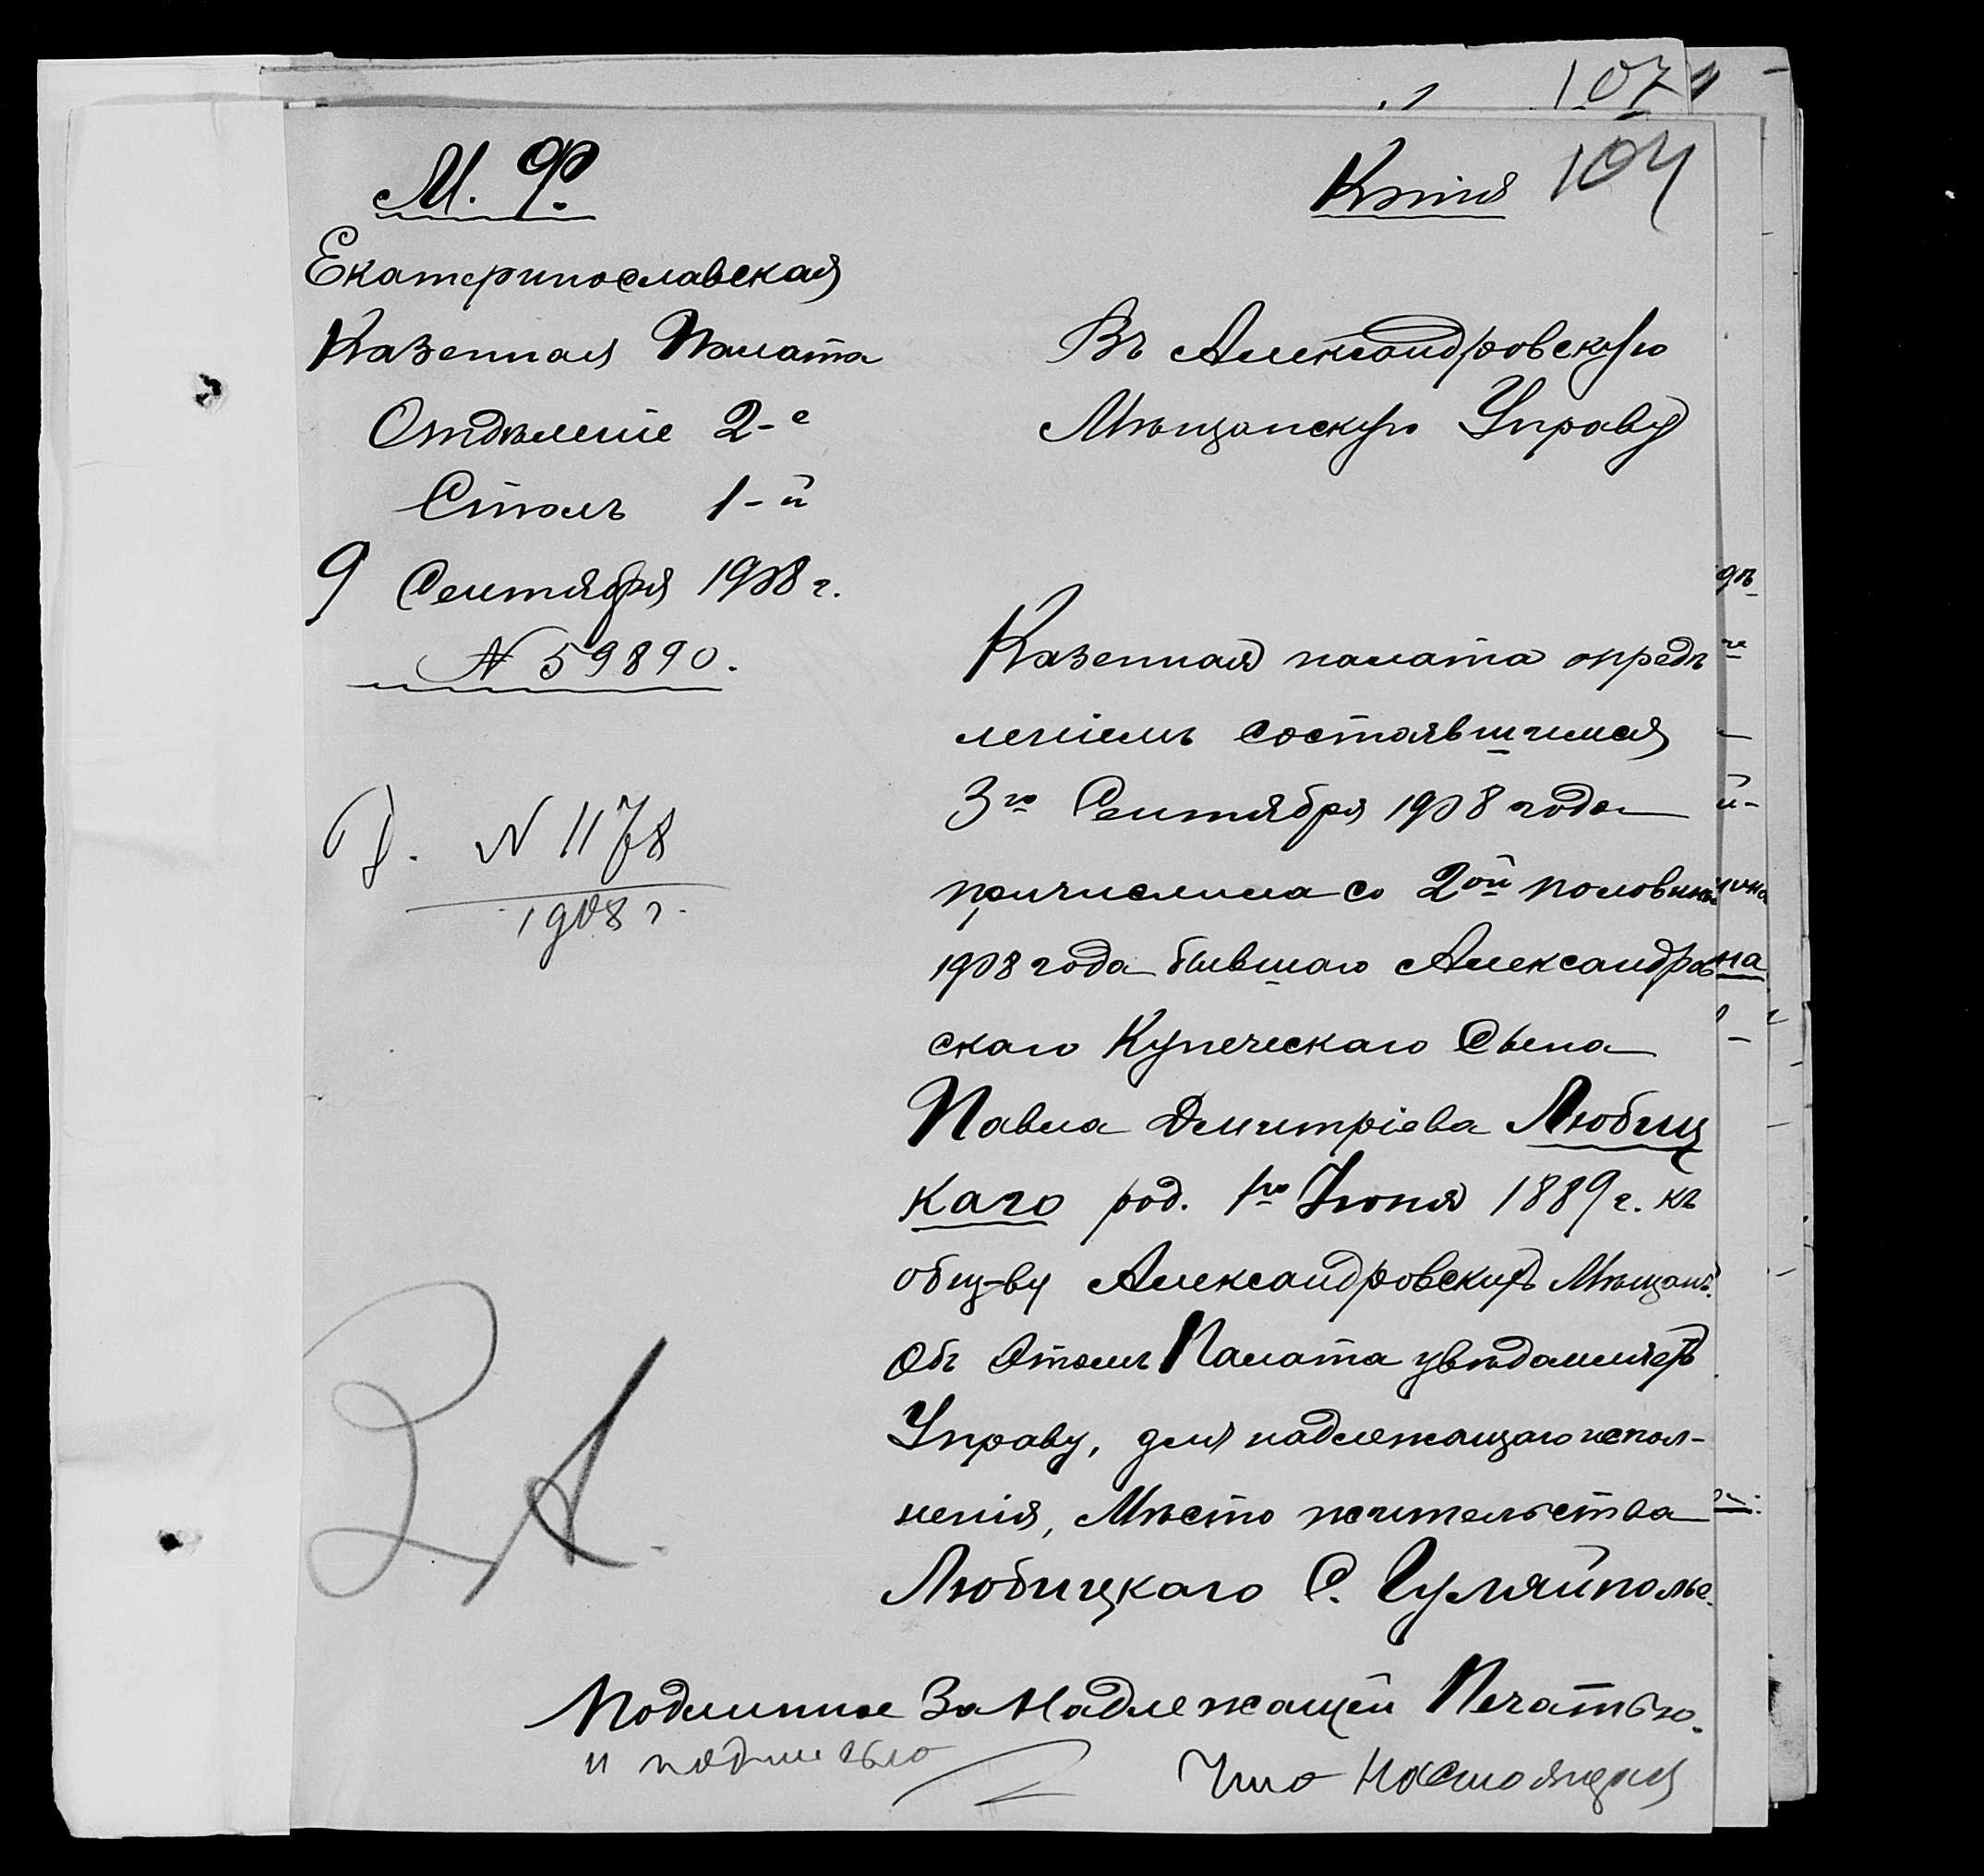 107
104
М. Ф.
Екатеринославская
Казенная Палата
Отдѣленіе 2-е
Столъ 1-й
9 Сентября 1908 г.
№ 59890.
Д. № 1178
1908 г.
Копія
Въ Александровскую
Мѣщанскую Управу
Казенная палата опредѣ
леніемъ состоявшимся
3го Сентября 1908 года
причислила со 2ой половины
1908 года бывшаго Александров
скаго Купеческаго Сына
Павла Дмитріева Любиц
каго род. 1го Іюня 1889 г. къ
общ-ву Александровскихъ Мѣщанъ.
Объ этомъ Палата увѣдомляетъ
Управу, для надлежащаго испол-
ненія, Мѣсто жительства
Любицкаго С. Гуляйполье.
Подлинное За Надлежащей Печатью.
и подписью
Что настоящая